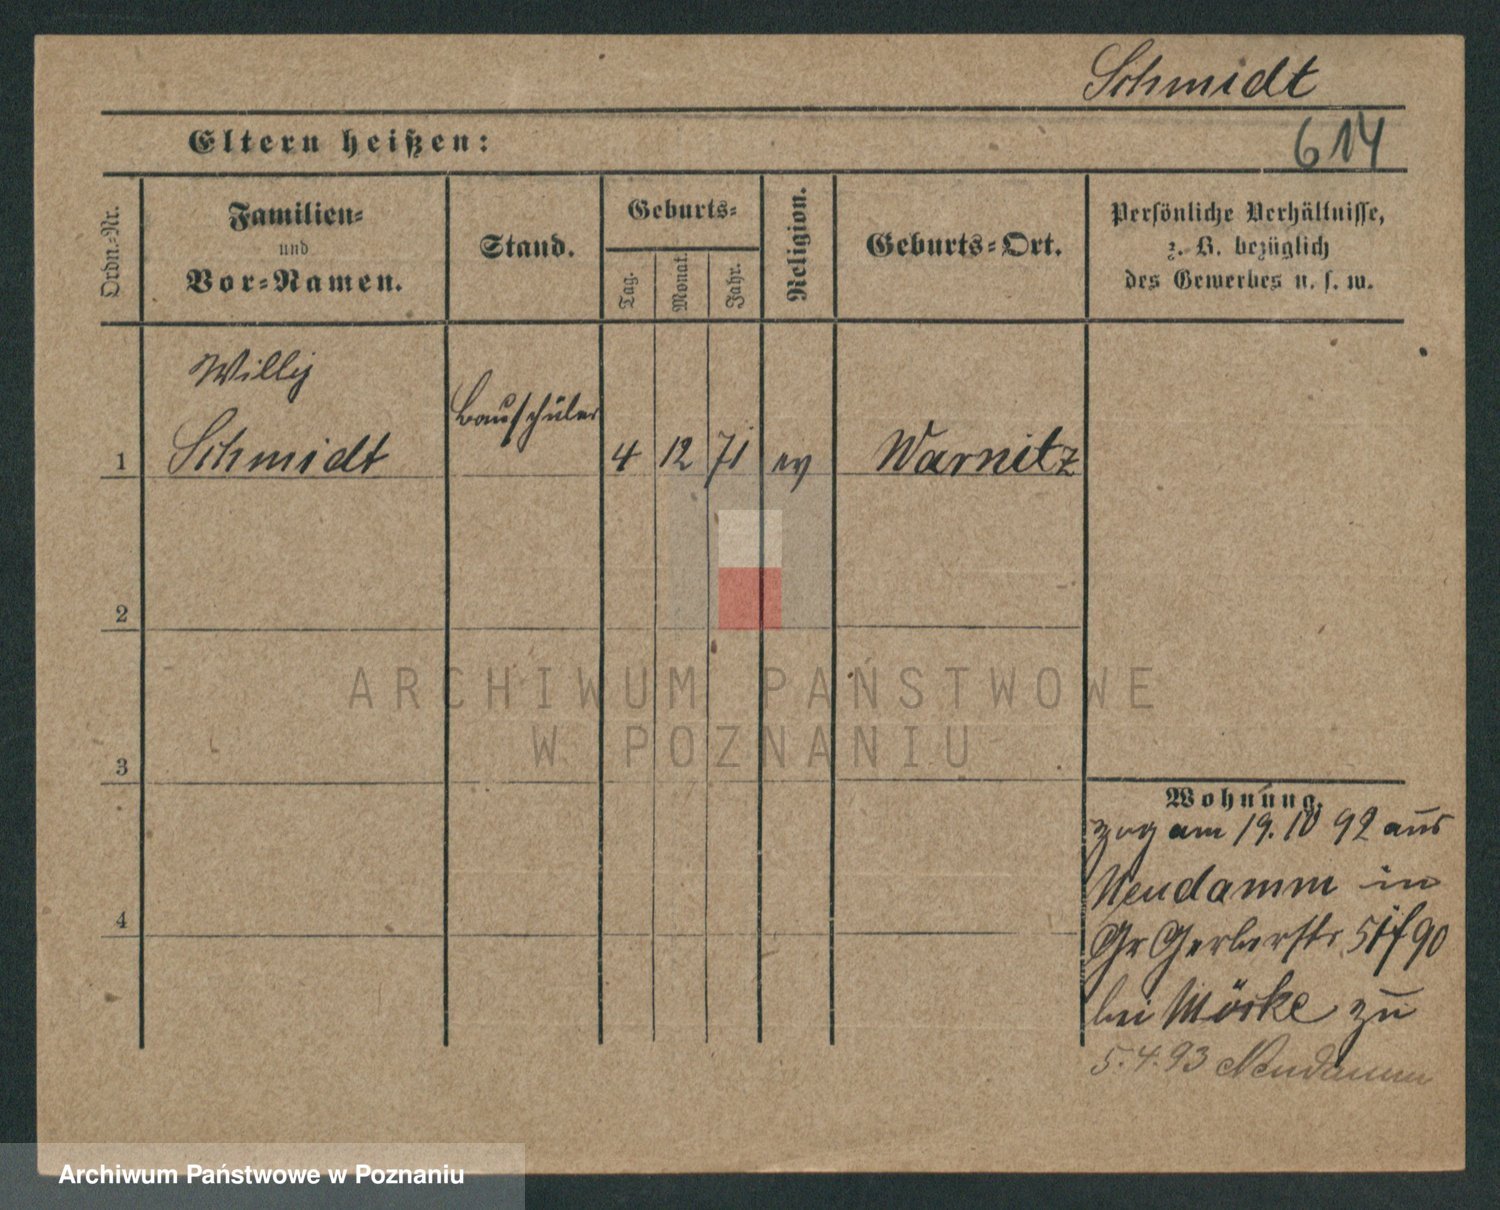 Schmidt
Eltern heißen:
614
Ordn.-Nr.
Familien-
und
Vor-Namen.
Stand.
Geburts-
Tag.
Monat.
Jahr.
Religion.
Geburts-Ort.
Persönliche Verhältnisse,
z. B. bezüglich
des Gewerbes u. s. w.
Willy
Bauschüler
1 Schmidt 4 12 71 ev Warnitz
2
ARCHIWUM PAŃSTWOWE
W POZNANIU
3
Wohnung.
zog am 19.10 92 aus
Neudamm in
Gr Gerberstr 51
bei Mörke zu
4
5.4.93 Neudamm
Archiwum Państwowe w Poznaniu